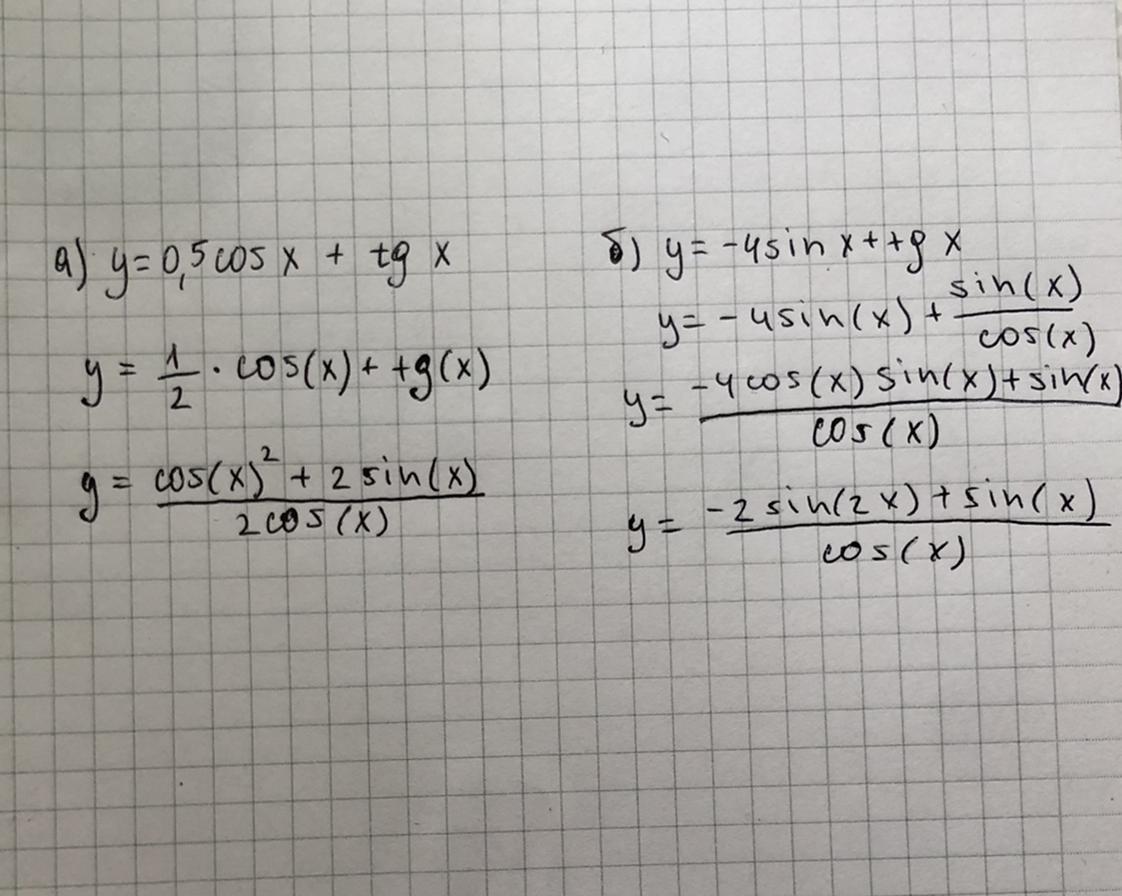 а) y = 0,5 cos x + tg x
y = 1/2 · cos(x) + tg(x)
y = (cos(x)² + 2 sin(x)) / (2 cos(x))
б) y = -4 sin x + tg x
y = -4 sin(x) + sin(x)/cos(x)
y = (-4 cos(x) sin(x) + sin(x)) / cos(x)
y = (-2 sin(2x) + sin(x)) / cos(x)